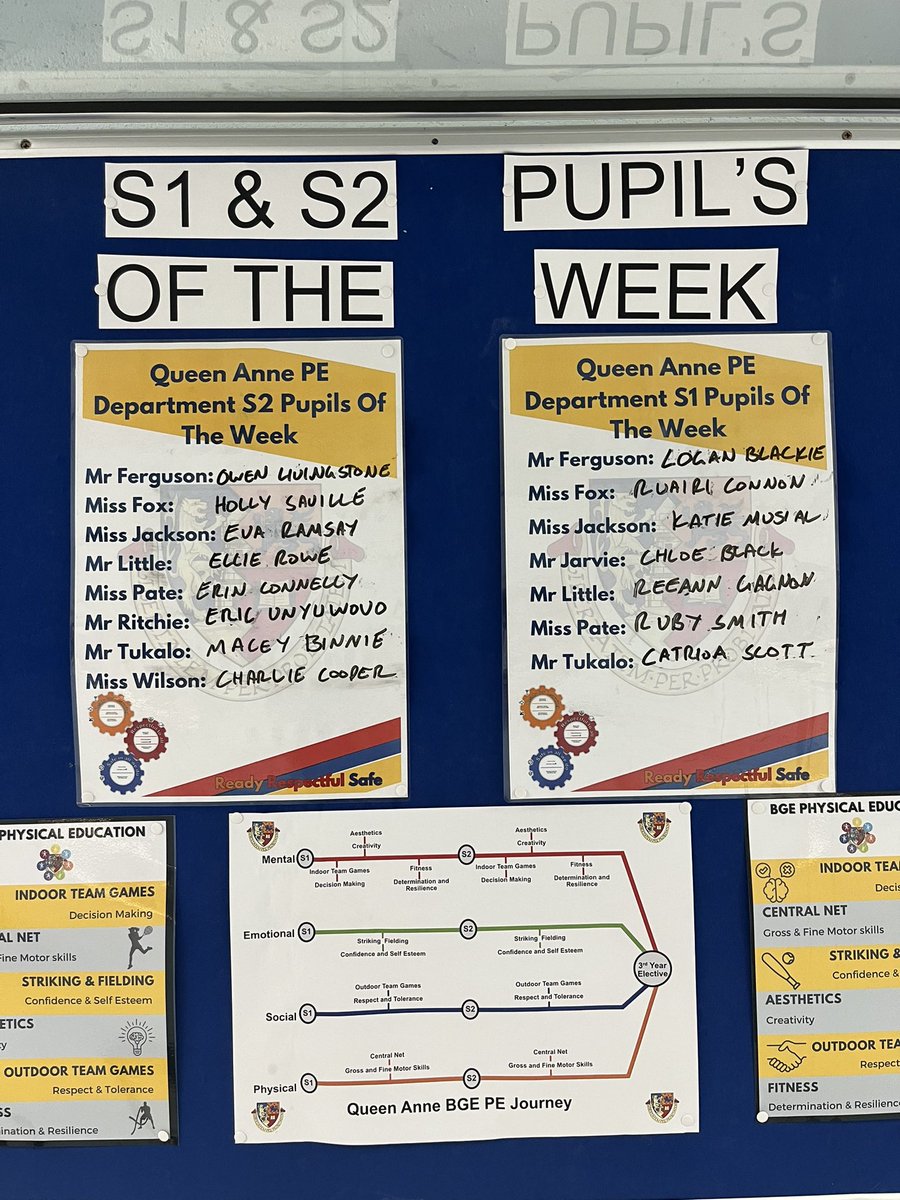 S1 & S2 PUPIL'S
S1 & S2 PUPIL'S
OF THE WEEK
Queen Anne PE
Department S2 Pupils Of
The Week
Mr Ferguson: OWEN LIVINGSTONE
Miss Fox: HOLLY SAVILLE
Miss Jackson: EVA RAMSAY
Mr Little: ELLIE ROWE
Miss Pate: ERIN CONNELLY
Mr Ritchie: ERIC UNYUWOVO
Mr Tukalo: MACEY BINNIE
Miss Wilson: CHARLIE COOPER
Ready Respectful Safe
Queen Anne PE
Department S1 Pupils Of
The Week
Mr Ferguson: LOGAN BLACKIE
Miss Fox: RUAIRI CONNON
Miss Jackson: KATIE MUSIAL
Mr Jarvie: CHLOE BLACK
Mr Little: REEANN GAGNON
Miss Pate: RUBY SMITH
Mr Tukalo: CATRIOA SCOTT
Ready Respectful Safe
PHYSICAL EDUCATION
INDOOR TEAM GAMES
Decision Making
AL NET
Fine Motor skills
STRIKING & FIELDING
Confidence & Self Esteem
ETICS
OUTDOOR TEAM GAMES
Respect & Tolerance
SS
ination & Resilience
Aesthetics
Creativity
Aesthetics
Creativity
Mental S1 S2
Indoor Team Games
Decision Making
Fitness
Determination and
Resilience
Indoor Team Games
Decision Making
Fitness
Determination and
Resilience
Emotional S1 S2
Striking Fielding
Confidence and Self Esteem
Striking Fielding
Confidence and Self Esteem
3rd Year
Elective
Outdoor Team Games
Respect and Tolerance
Outdoor Team Games
Respect and Tolerance
Social S1 S2
Central Net
Gross and Fine Motor Skills
Central Net
Gross and Fine Motor Skills
Physical S1 S2
Queen Anne BGE PE Journey
BGE PHYSICAL EDUC
INDOOR TE
Decis
CENTRAL NET
Gross & Fine Motor skills
STRIKING &
Confidence &
AESTHETICS
Creativity
OUTDOOR TEA
Respect
FITNESS
Determination & Resilience